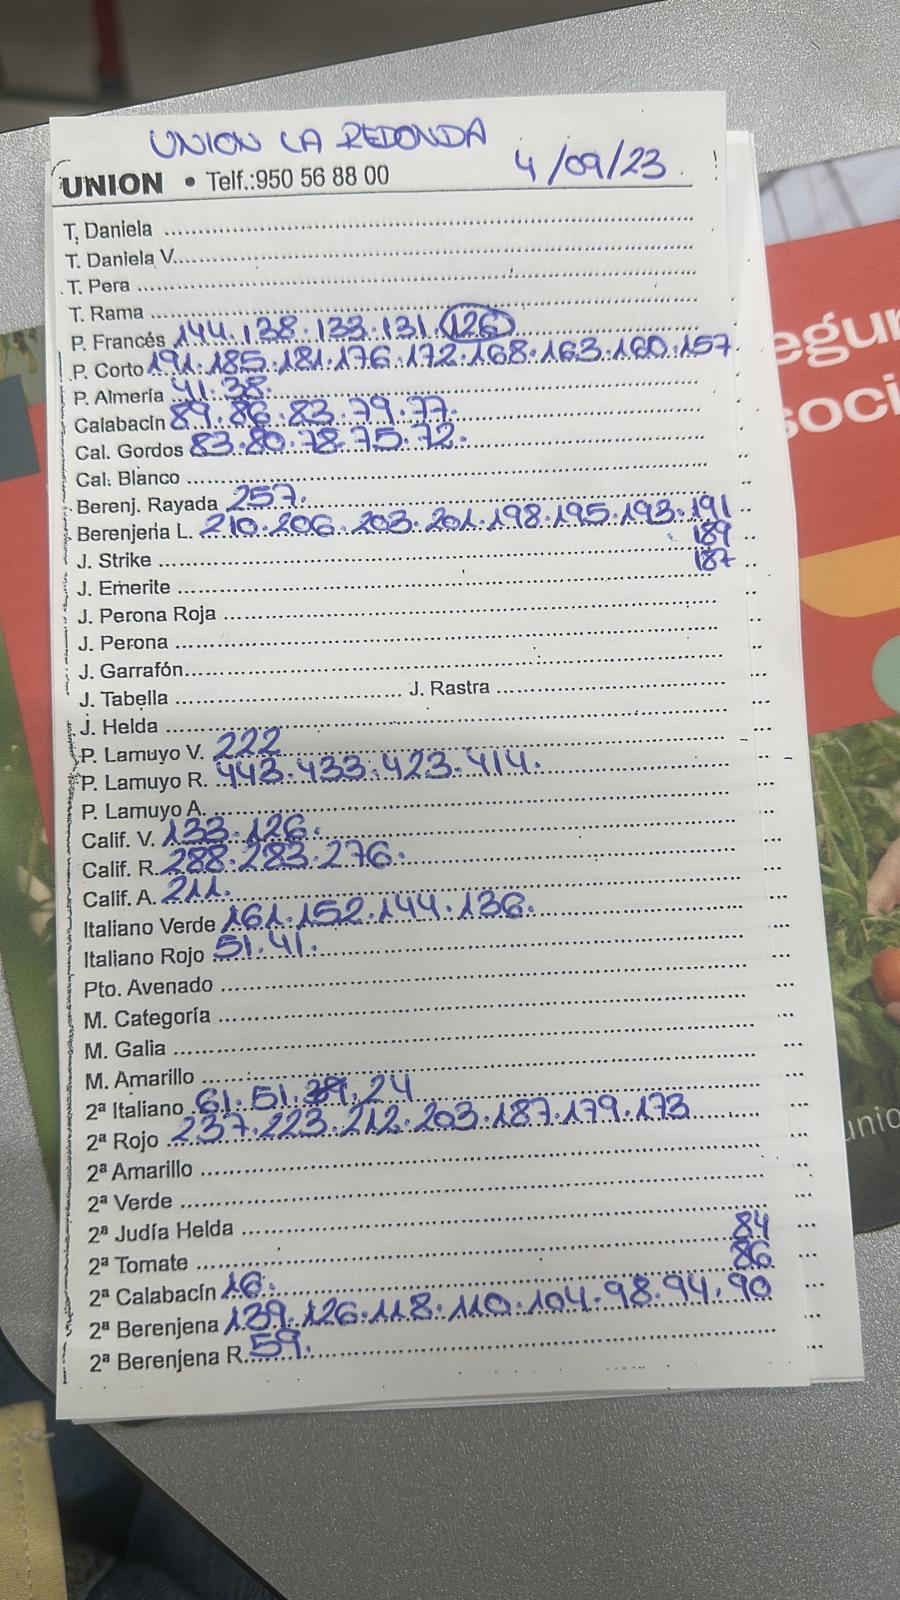 UNION LA REDONDA
UNION • Telf.:950 56 88 00 4/09/23
T. Daniela
T. Daniela V.
T. Pera
T. Rama
P. Francés 144. 138. 133. 131. 126
P. Corto 191. 185. 181. 176. 172. 168. 163. 160. 157
P. Almería 41. 38.
Calabacín 89. 86. 83. 79. 77.
Cal. Gordos 83. 80. 78. 75. 72.
Cal. Blanco
Berenj. Rayada 257.
Berenjena L. 210. 206. 203. 201. 198. 195. 193. 191
189
J. Strike 187
J. Emerite
J. Perona Roja
J. Perona
J. Garrafón
J. Tabella J. Rastra
J. Helda
P. Lamuyo V. 222
P. Lamuyo R. 443. 433. 423. 414.
P. Lamuyo A.
Calif. V. 133. 126.
Calif. R. 288. 283. 276.
Calif. A. 211.
Italiano Verde 161. 152. 144. 136.
Italiano Rojo 51. 41.
Pto. Avenado
M. Categoría
M. Galia
M. Amarillo
2ª Italiano 61. 51. 24
2ª Rojo 237. 223. 212. 203. 187. 179. 173
2ª Amarillo
2ª Verde
2ª Judía Helda 84
2ª Tomate 86
2ª Calabacín 16.
2ª Berenjena 139. 126. 118. 110. 104. 98. 94. 90
2ª Berenjena R. 59.
egur
soci
unio